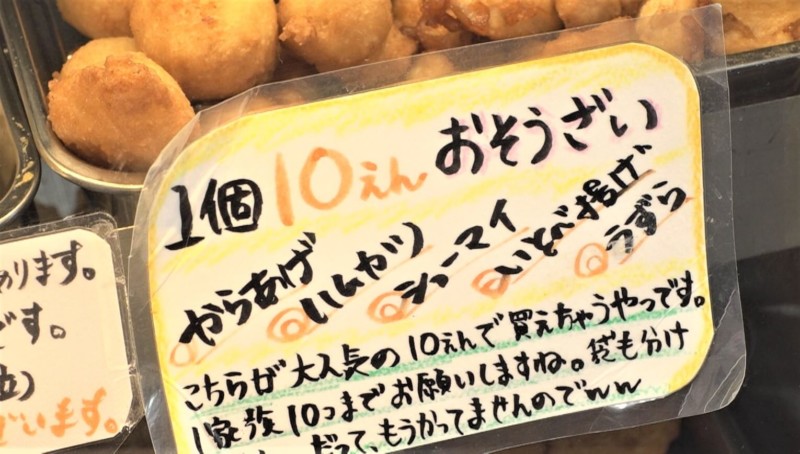 1個10えん おそうざい
からあげ
ハムカツ
シューマイ
いとべ揚げ
うずら
こちらが大人気の10えんで買えちゃうやつです。
1家族10つまでお願いしますね。袋も分け
だって、もうかってませんのでww
ります。
です。
ざいます。